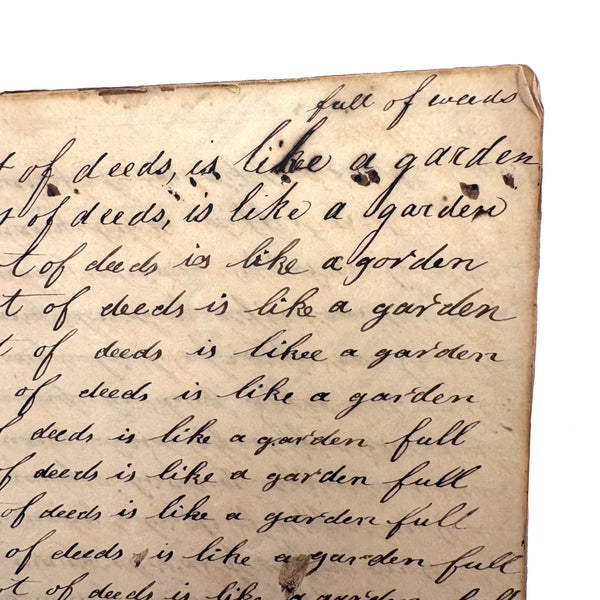 full of weeds
t of deeds, is like a garden
t of deeds, is like a garden
t of deeds is like a gorden
t of deeds is like a garden
t of deeds is likee a garden
of deeds is like a garden
f deeds is like a garden full
of deeds is like a garden full
of deeds is like a garden full
t of deeds is like a garden full
ot of deeds is like a garden full